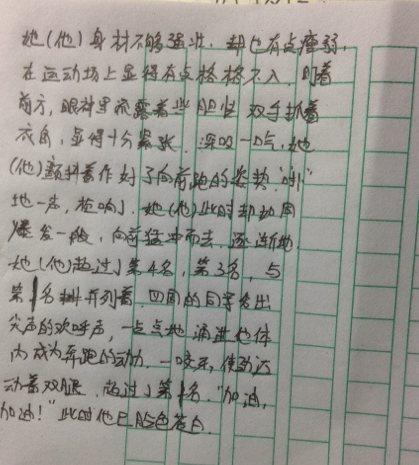 她(他)身材不够强壮，却也有点瘦弱，
在运动场上显得有点格格不入，盯着
前方，眼神里流露着些胆怯 双手抓着
衣角，显得十分紧张，深吸一口气，她
(他)颤抖着作好了向前跑的姿势"呯"
地一声，枪响了，她(他)此时却如同
爆发一般，向前猛冲而去，逐渐地
她(他)超过了第4名，第3名，与
第1名并列着，四周的同学发出
尖声的欢呼声，一点点地涌进他体
内成为奔跑的动力，一咬牙，使劲
动着双腿，超过了第1名，"加油，
加油！"此时他已脸色苍白，